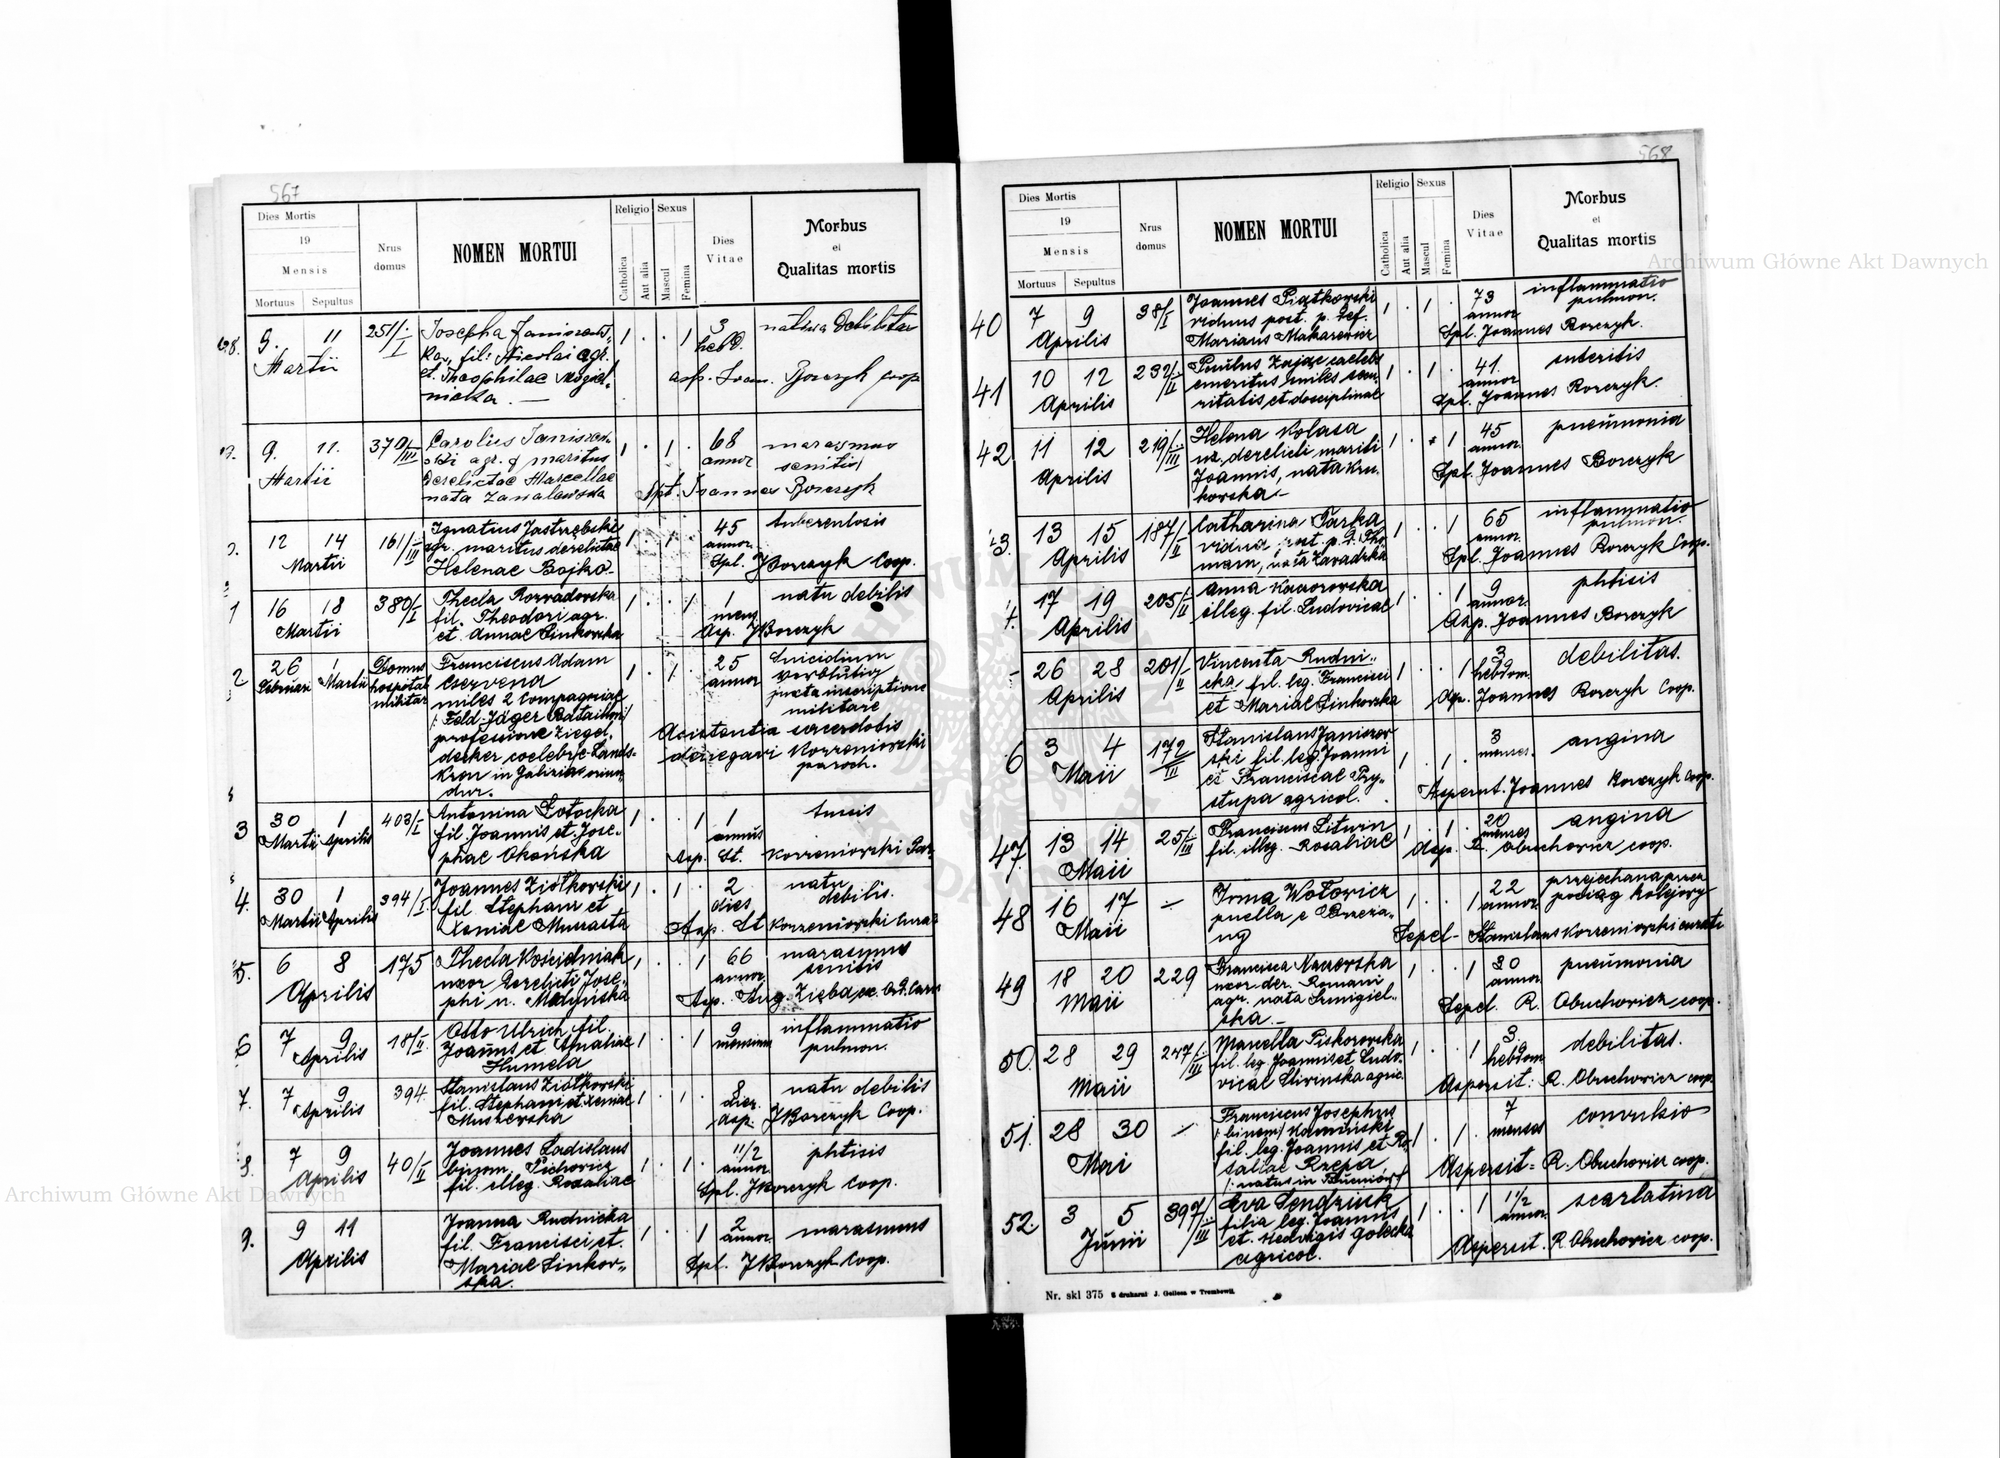 567
Dies Mortis
19
Mensis
Mortuus Sepultus
Nrus domus
NOMEN MORTUI
Religio
Catholica
Aut alia
Sexus
Mascul
Femina
Dies Vitae
Morbus
et
Qualitas mortis
9. 11 Martii 251/I
fil: Nicolai agr.
et Theophilae
1 . . 1 3 hebd.
nativa debilitas
Borczyk coop
9. 11. Martii 379/III
Carolus
agr. maritus
derelictae Marcellae
nata
1 . 1 . 68 annor
marasmus
senilis
Joannes Borczyk
12 14 Martii 161/III
Ignatius Jastrzębski
agr. maritus derelictae
Helenae Bojko
45 annor.
tuberculosis
Spl. JBorczyk Coop.
1 16 18 Martii 380/I
Thecla Rozwadowska
fil. Theodori agr.
et Annae Sinkowska
1 . . 1 1 mens
natu debilis
Asp. JBorczyk
2 26 Februari 1 Martii
Domus
hospital
militar
Franciscus Adam
Czervena
miles 2 Compagniae
Feld-Jäger Bataillon
professione Ziegel
decker coelebs e Lands-
kron in Galizia oriun
dus.
1 . 1 . 25 annor
Suicidium
juxta inscriptione
militare
Assistentia sacerdotis
Korzeniowski
paroch.
3 30 Martii 1 Aprilis 403/I
Antonina Łotocka
fil. Joannis et Jose-
phae Okońska
1 . . 1 1 annus
tussis
Asp. St. Korzeniowski
4. 30 Martii 1 Aprilis 394/I
Joannes Ziółkowski
fil Stephani et
Xeniae
1 . 1 . 2 dies
natu
debilis.
Asp. St Korzeniowski
5. 6 8 Aprilis 175
Thecla Kościelniak
uxor derelicti Jose-
phi n.
1 . . 1 66 annor
marasmus
senilis
Asp. Aug. Zięba
6 7 9 Aprilis 18/II
Otto Ulrich fil.
Joannis et Amaliae
Humela
1 . . 1 9 mensium
inflammatio
pulmon.
7. 7 9 Aprilis 394.
Stanislaus Ziółkowski
fil. Stephani et Xeniae
1 . 1 . 8 dier.
natu debilis
Asp. JBorczyk Coop.
8. 7 9 Aprilis 40/I
Joannes Ladislaus
binom. Pichowicz
fil. illeg. Rosaliae
1 . 1 . 1 1/2 annor
phtisis
Spl. JBorczyk Coop.
9. 9 11 Aprilis
Joanna Rudnicka
fil. Francisci et
Mariae Sinkow-
ska.
1 . . 1 2 annor.
marasmus
Spl. JBorczyk Coop.
568
Dies Mortis
19
Mensis
Mortuus Sepultus
Nrus domus
NOMEN MORTUI
Religio
Catholica
Aut alia
Sexus
Mascul
Femina
Dies Vitae
Morbus
et
Qualitas mortis
40 7 9 Aprilis 38/I
Joannes Piątkowski
viduus post. p. def.
Mariam Makarewicz
1 . 1 . 73 annor
inflammatio
pulmon.
Spl. Joannes Borczyk.
41 10 12 Aprilis 232/II
Paulus Zając caelebs
emeritus miles secu-
ritatis et disciplinae
1 . 1 . 41. annor
enteritis
Spl. Joannes Borczyk.
42 11 12 Aprilis 219/III
Helena Kolasa
ux. derelicti mariti
Joannis, nata Kru-
kowska
1 . 1 45 annor.
pneumonia
Spl. Joannes Borczyk
13 15 Aprilis 187/II
Catharina Parka
vidua post p. d. Tho
mam, nata Zawadzka
1 . . 1 65 annor.
inflammatio
pulmon.
Spl. Joannes Borczyk Coop.
17 19 Aprilis 205/II
Anna
illeg. fil. Ludovicae
1 . . 1 9 annor.
phtisis
Asp. Joannes Borczyk
26 28 Aprilis 201/II
Vincenta Rudni-
cka fil. leg. Francisci
et Mariae Sinkowska
1 . . 1 3 hebdom.
debilitas.
Asp. Joannes Borczyk Coop.
6 3 4 Maii 172/III
Stanislaus Janiszew
ski fil. leg. Joanni
et Franciscae Pry-
stupa agricol.
1 . 1 . 3 menses.
angina
Asperut. Joannes Borczyk Coop.
47 13 14 Maii 25/III
Franciscus Litwin
fil. illeg. Rosaliae
1 . 1 . 20 menses
angina
Asp. R. Obuchowicz coop.
48 16 17 Maii —
Irma Wołowicz
puella e Brzeża-
ny
1 . . 1 22 annor.
przejechana przez
pociąg kolejowy
Sepel- Stanislaus Korzeniowski
49 18 20 Maii 229
Francisca
uxor der. Romani
agr. nata Smigiel-
ska.
1 . . 1 30 annor.
pneumonia
Sepel. R. Obuchowicz coop.
50. 28 29 Maii 247/III
Marcella Piskorowska
fil. leg Joannis et Ludo-
vicae Sliwinska agric.
1 . . 1 3. hebdom
debilitas.
Aspersit: R. Obuchowicz coop.
51. 28 30 Mai —
Franciscus Josephus
/: binom/ Kamiński
fil. leg. Joannis et Ro-
saliae Rzepa
/: natus in
1 . 1 . 7 menses
convulsio
Aspersit = R. Obuchowicz coop.
52. 3 5 Junii 397/III
Eva Sendziuk
filia leg. Joannis
et Hedvigis Golecka
agricol.
1 . . 1 1 1/2 annor.
scarlatina
Asperut. R. Obuchowicz coop.
Nr. skl 375 Z drukarni J. Gollosa w Trembowli.
Archiwum Główne Akt Dawnych
Archiwum Główne Akt Dawnych